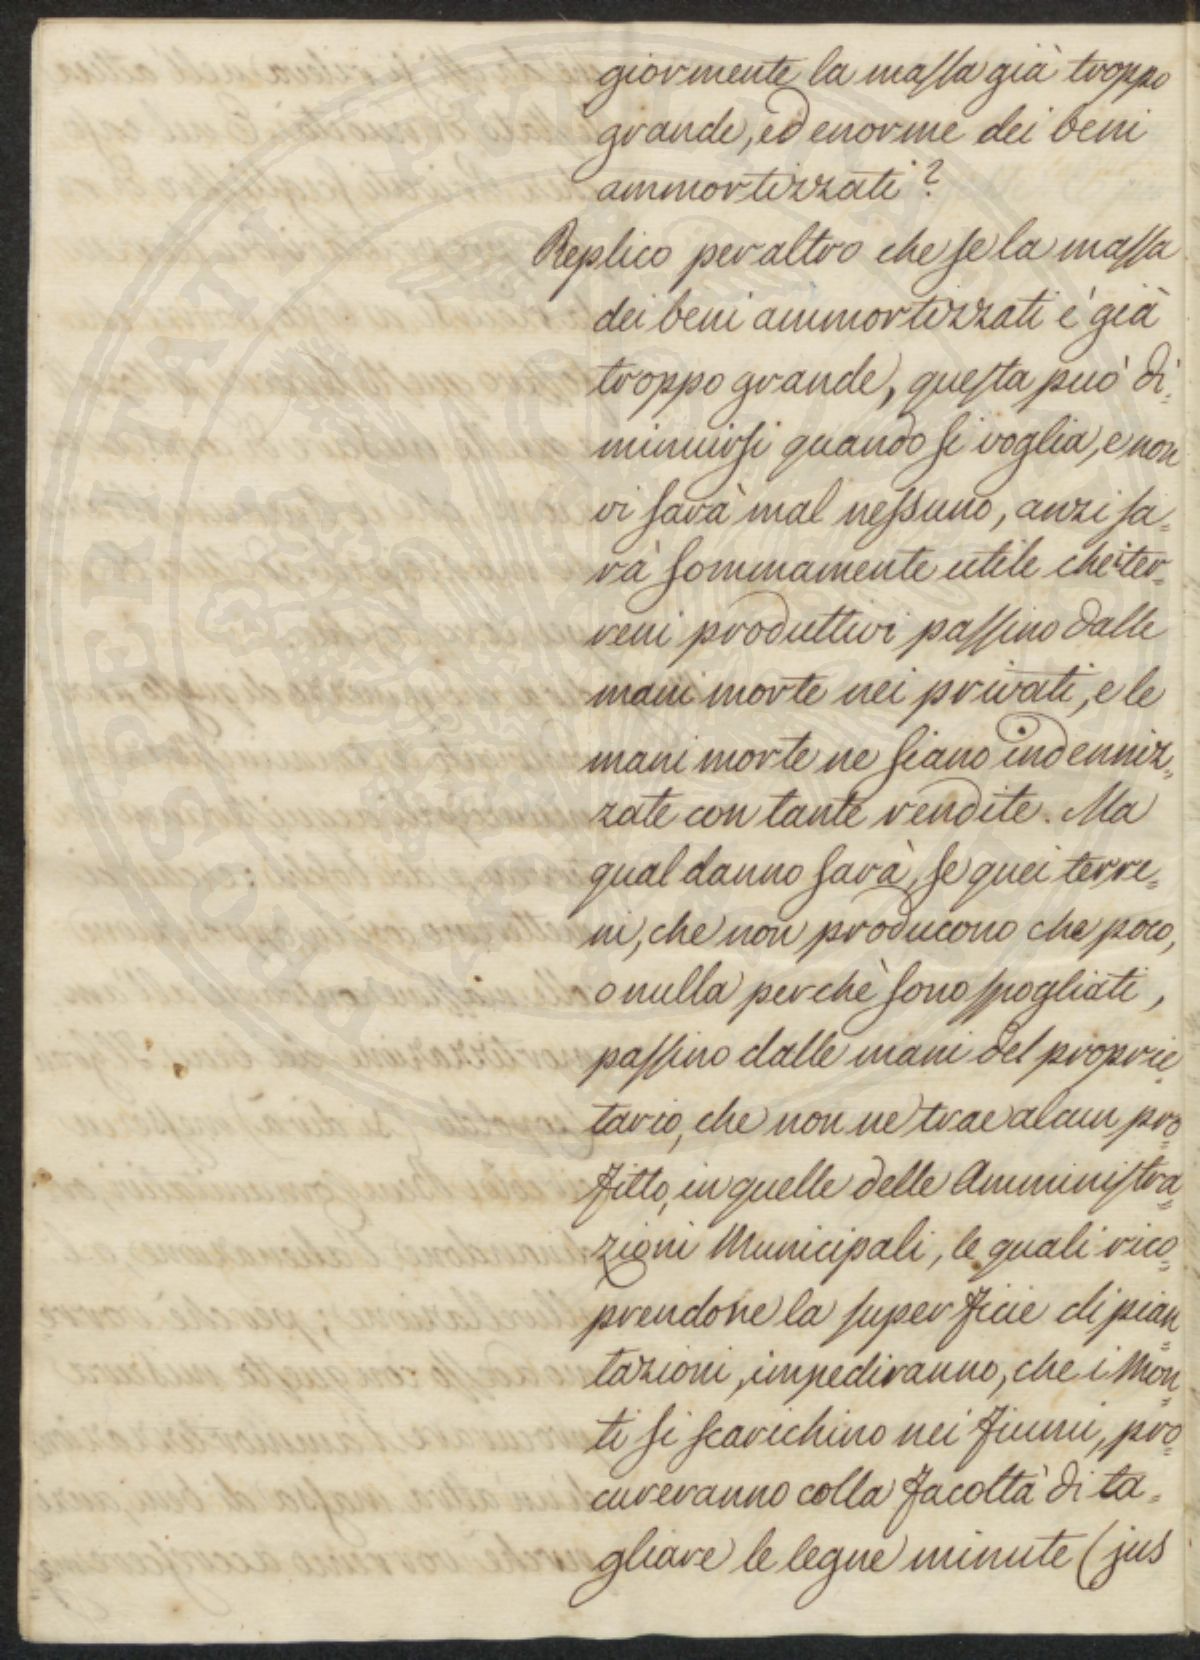 giormente la massa già troppo
grande, ed enorme dei beni
ammortizzati?
Replico peraltro che se la massa
dei beni ammortizzati è già
troppo grande, questa può di=
minuirsi quando si voglia, e non
vi sarà mal nessuno, anzi sa=
rà sommamente utile che i ter=
reni produttivi passino dalle
mani morte nei privati, e le
mani morte ne siano indenniz=
zate con tante vendite. Ma
qual danno sarà, se quei terre=
ni, che non producono che poco,
o nulla perchè sono spogliati,
passino dalle mani del proprie=
tario, che non ne trae alcun pro=
fitto, in quelle delle Amministra=
zioni Municipali, le quali rico=
prendone la superficie di pian=
tazioni, impediranno, che i Mon=
ti si scarichino nei fiumi, pro=
cureranno colla facoltà di ta=
gliare le legne minute (jus
PROSPERITATI PUBLICAE